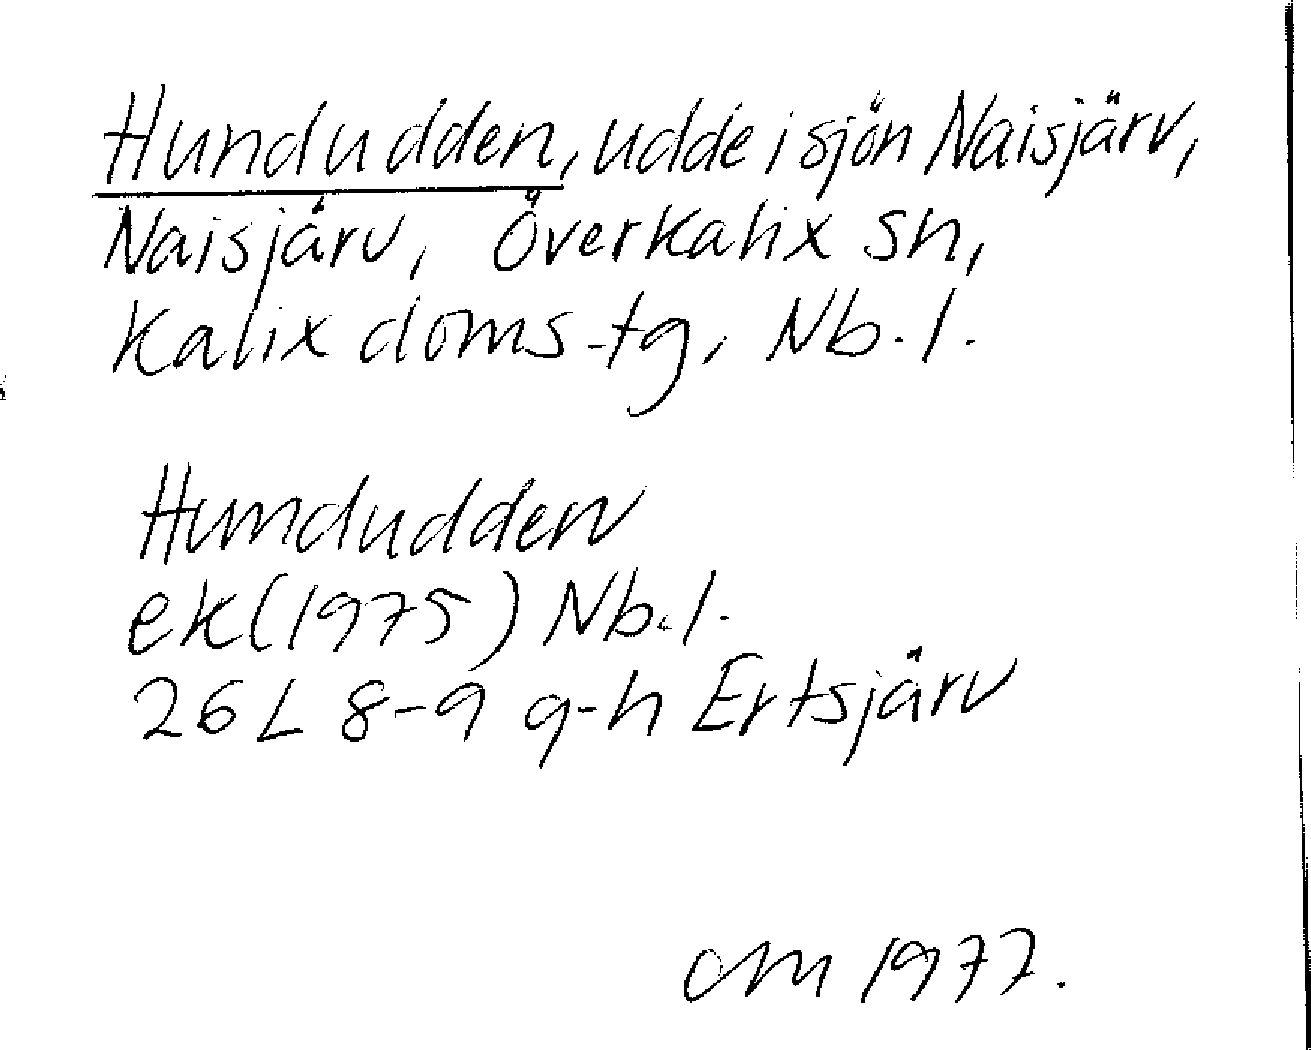 Hundudden, udde i sjön Naisjärv,
Naisjärv, Överkalix sn,
Kalix doms.tg, Nb.l.
Hundudden
ek (1975) Nb.l.
26L 8-9 g-h Ertsjärv
1977.